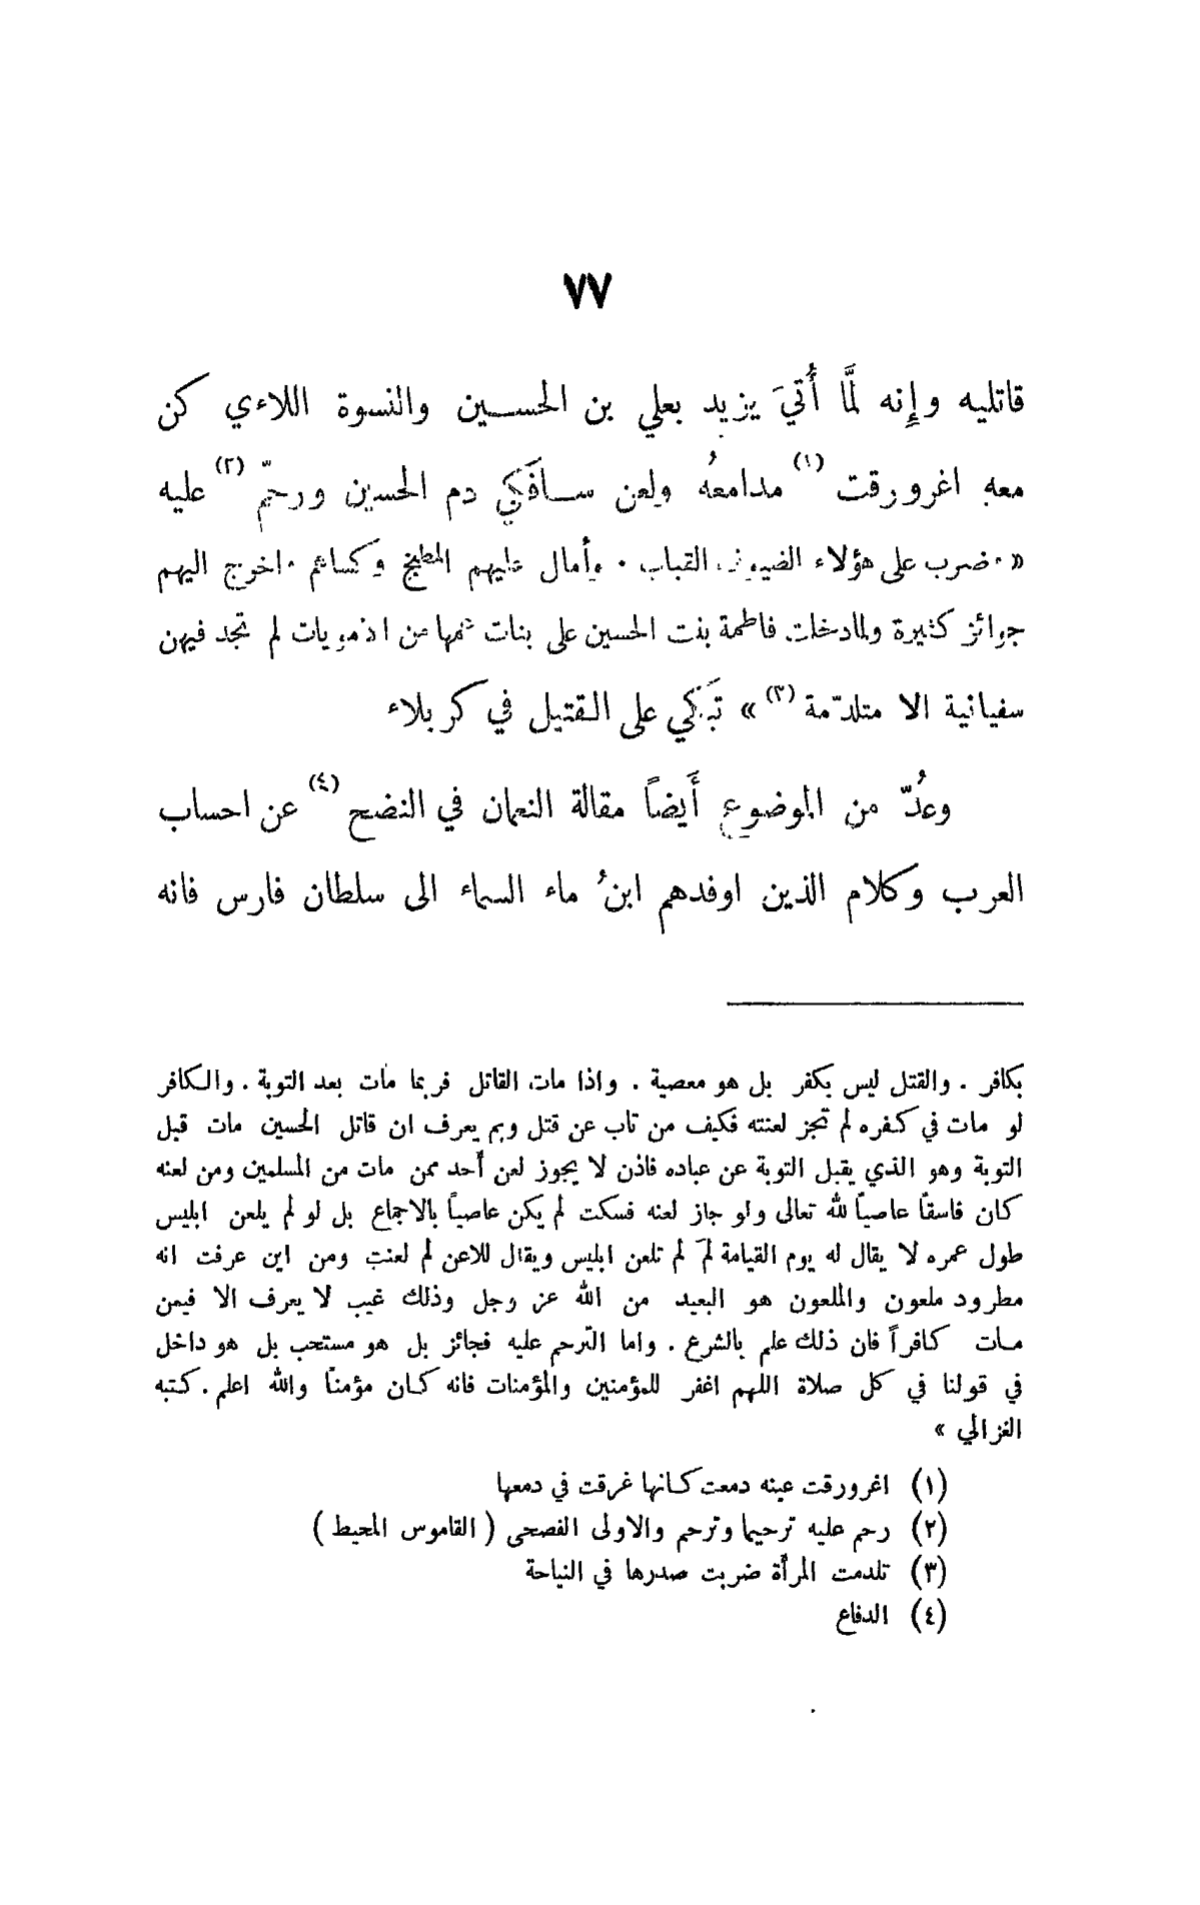 ٧٧
قاتليه وإنه لمَّا أُتيَ يزيد بعلي بن الحسين والنسوة اللاءي كن
معه اغرورقت (١) مدامعهُ ولعن سافكي دم الحسين ورحمّ (٢) عليه
« ضرب على هؤلاء الضيوف القباب . وأمال عليهم المطبخ وكساهم . اخرج اليهم
جوائز كثيرة ولما دخلت فاطمة بنت الحسين على بنات عمها من الامويات لم تجد فيهن
سفيانية الا متلدّمة (٣) » تَبكي على القتيل في كربلاء
وعُدّ من الموضوع أَيضاً مقالة النعمان في النضح (٤) عن احساب
العرب وكلام الذين اوفدهم ابنُ ماء السماء الى سلطان فارس فانه
بكافر . والقتل ليس بكفر بل هو معصية . واذا مات القاتل فربما مات بعد التوبة . والكافر
لو مات في كفره لم تجز لعنته فكيف من تاب عن قتل وبم يعرف ان قاتل الحسين مات قبل
التوبة وهو الذي يقبل التوبة عن عباده فاذن لا يجوز لعن أحد ممن مات من المسلمين ومن لعنه
كان فاسقاً عاصياً لله تعالى ولو جاز لعنه فسكت لم يكن عاصياً بالاجماع بل لو لم يلعن ابليس
طول عمره لا يقال له يوم القيامة لمَ لم تلعن ابليس ويقال للاعن لم لعنت ومن اين عرفت انه
مطرود ملعون والملعون هو البعيد من الله عز وجل وذلك غيب لا يعرف الا فيمن
مات كافراً فان ذلك علم بالشرع . واما الترحم عليه فجائز بل هو مستحب بل هو داخل
في قولنا في كل صلاة اللهم اغفر للمؤمنين والمؤمنات فانه كان مؤمناً والله اعلم . كتبه
الغزالي »
(١) اغرورقت عينه دمعت كانها غرقت في دمعها
(٢) رحم عليه ترحيما وترحم والاولى الفصحى ( القاموس المحيط )
(٣) تلدمت المرأة ضربت صدرها في النياحة
(٤) الدفاع